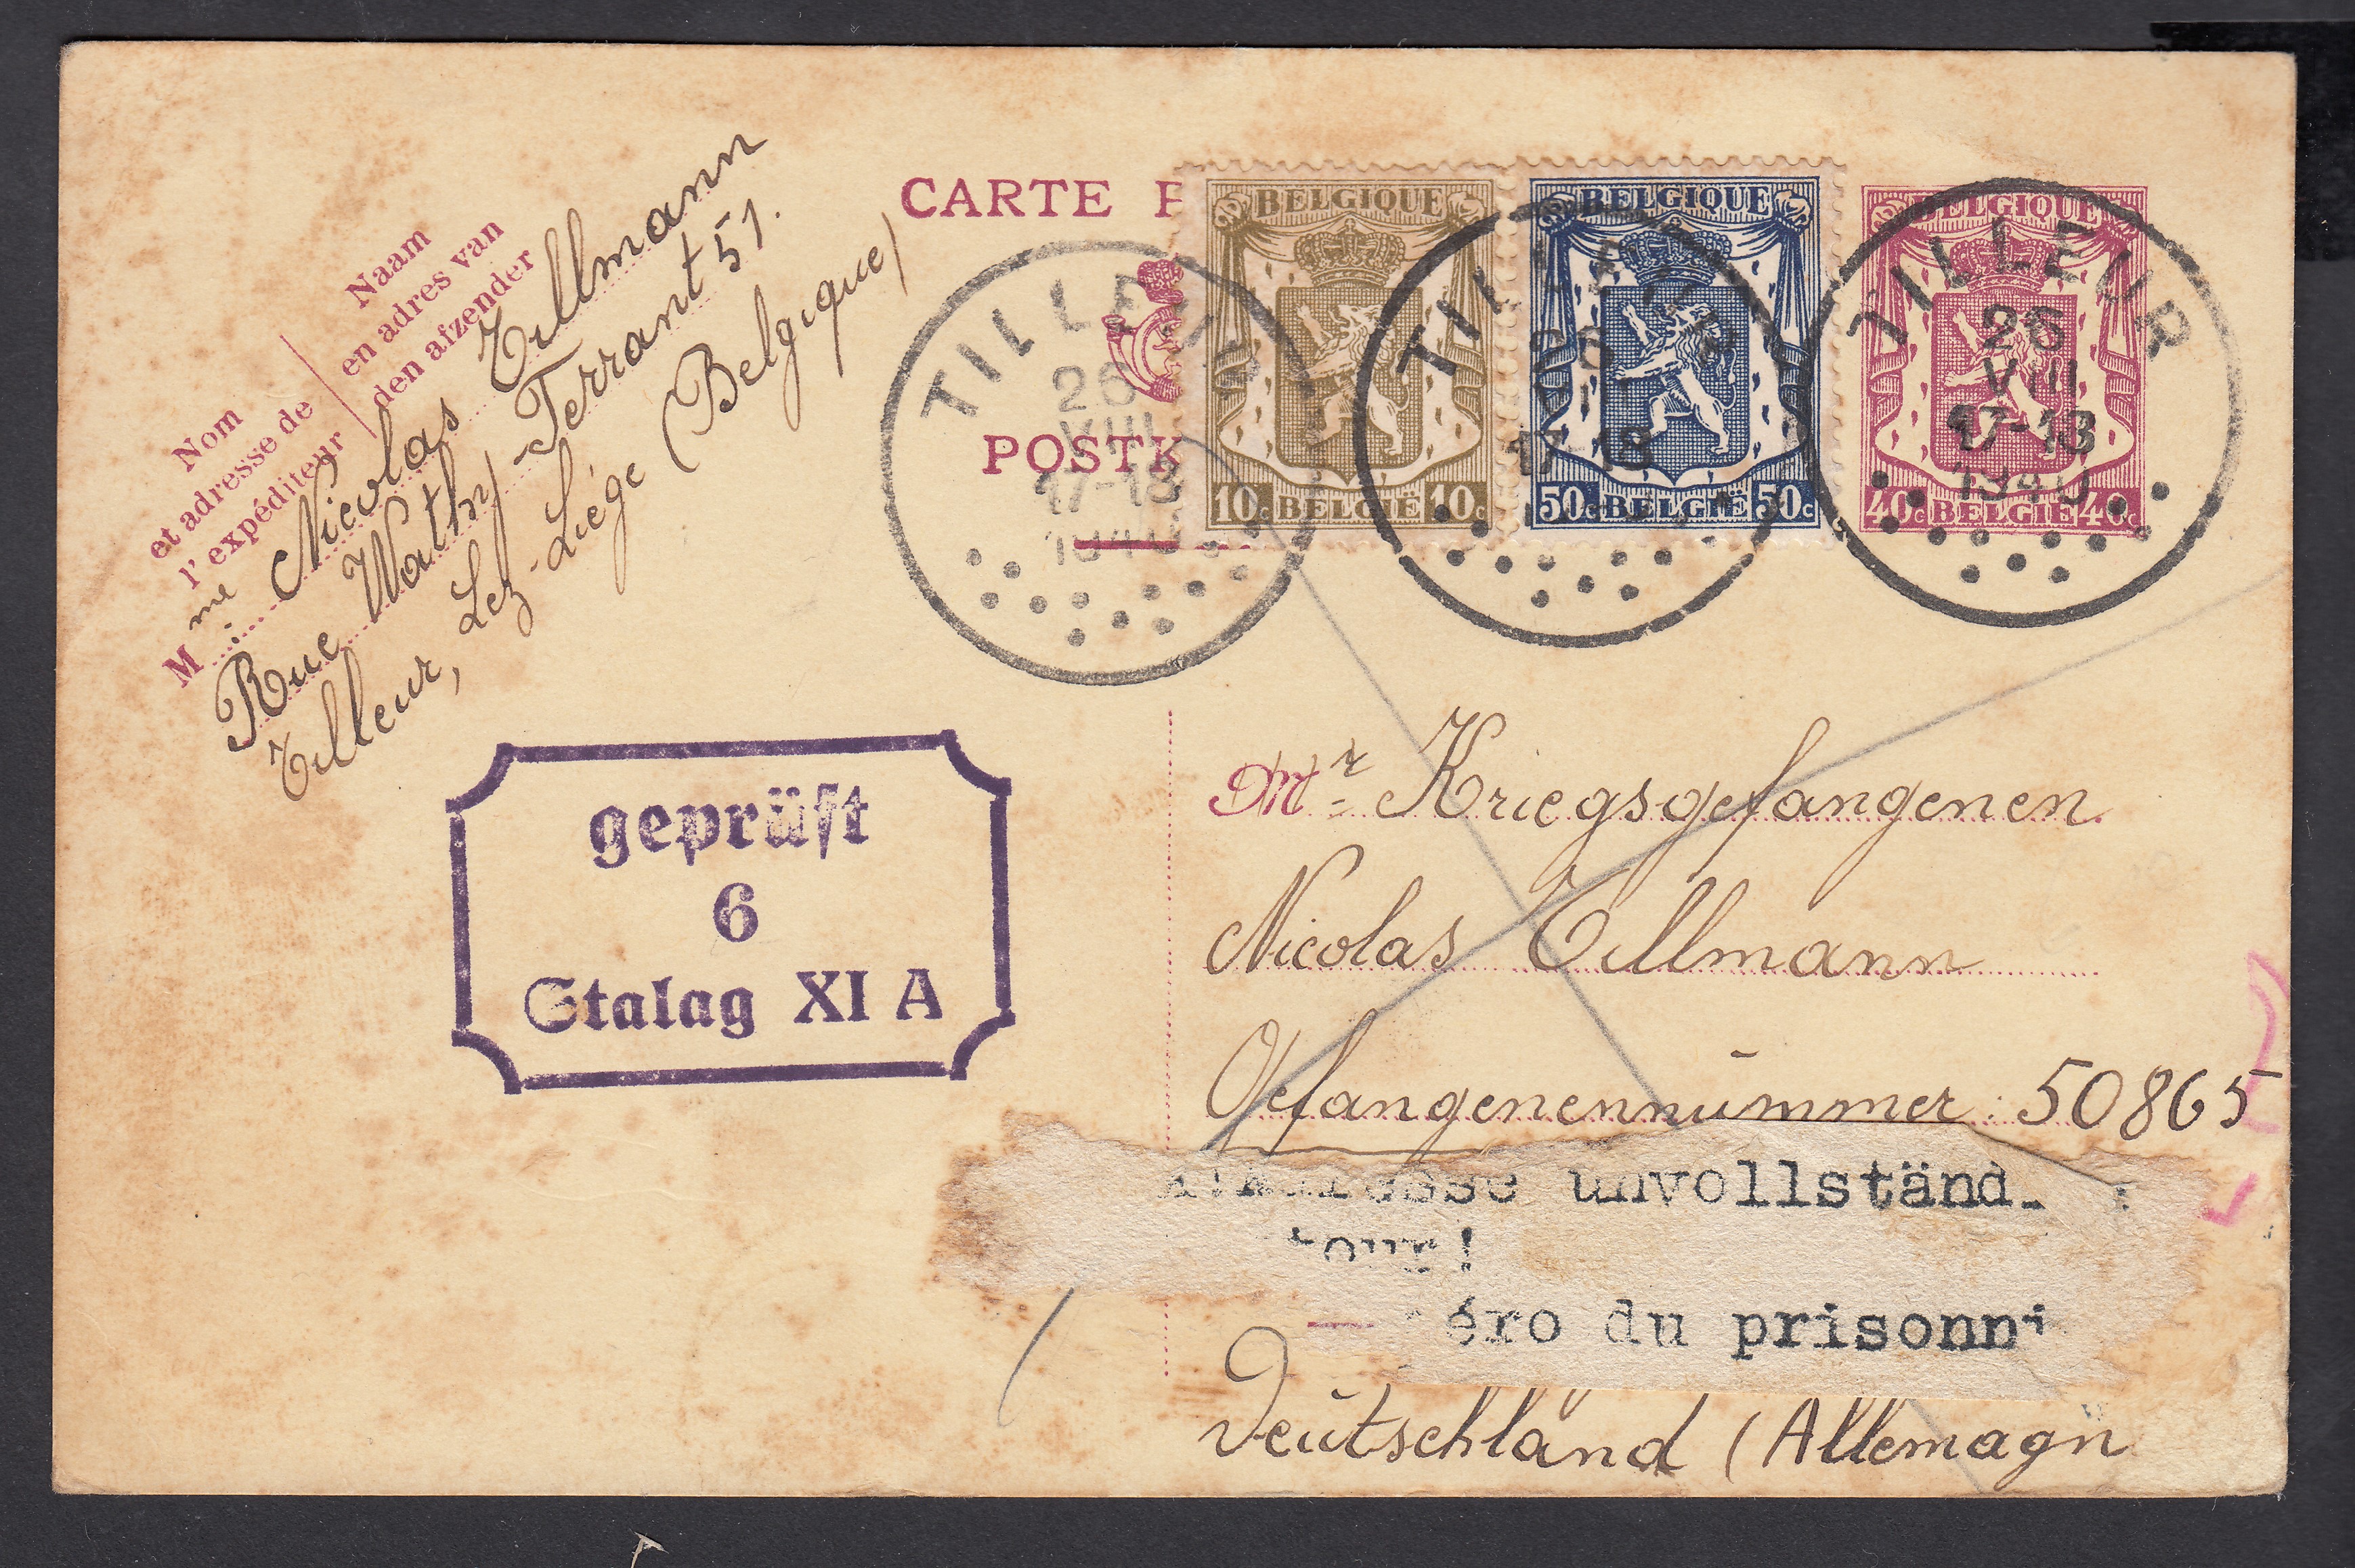 Nom
et adresse de
l'expéditeur
Naam
en adres van
den afzender
Mme Nicolas Tillmann
Rue Wathy-Terrant 51.
Tilleur, Lez-Liége (Belgique)
CARTE P
POSTK
BELGIQUE
10c BELGIË 10c
BELGIQUE
50c BELGIË 50c
BELGIQUE
40c BELGIE 40c
TILLEUR
26
VIII
17-18
1940
TILLEUR
26
VIII
17-18
TILLEUR
26
VIII
17-18
1940
geprüft
6
Stalag XI A
Mr Kriegsgefangenen
Nicolas Tillmann
Gefangenennummer: 50865
unvollständ.
tour!
éro du prisonni
Deutschland (Allemagn